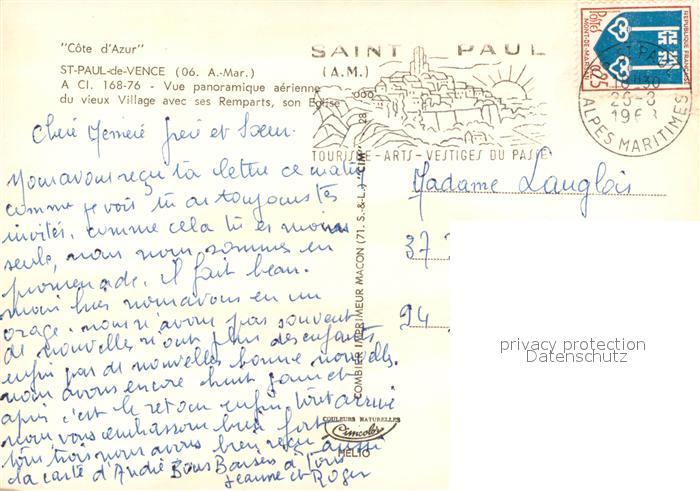 "Côte d'Azur"
ST-PAUL-de-VENCE (06. A.-Mar.)
A CI. 168-76 - Vue panoramique aérienne
du vieux Village avec ses Remparts, son Eglise
SAINT PAUL
(A.M.)
TOURISME-ARTS-VESTIGES DU PASSE
REPUBLIQUE FRANÇAISE
POSTES
MONT-DE-MARSAN
0,25
ST PAUL
16H30
23-8
1968
ALPES MARITIMES
frère et Soeur.
Nous avons reçu ta lettre ce matin
comme je vois tu as toujours tes
invités, comme cela tu es moins
seule, nous nous sommes en
promenade. il fait beau.
mais hier nous avons eu un
orage. nous n'avons pas souvent
de nouvelles n'ont plus des enfants
enfin pas de nouvelles bonne nouvelles.
nous avons encore huit jours et
après c'est le retour enfin tout arrive
nous vous embrassons bien fort
tous trois nous avons bien reçu aussi
la carte d'André Bons Baisers à Tous
Jeanne et Roger
COMBIER IMPRIMEUR MACON (71. S.-&-L.) "CIM"
COULEURS NATURELLES
Cimcolor
HELIO
Madame Langlois
37
94
privacy protection
Datenschutz